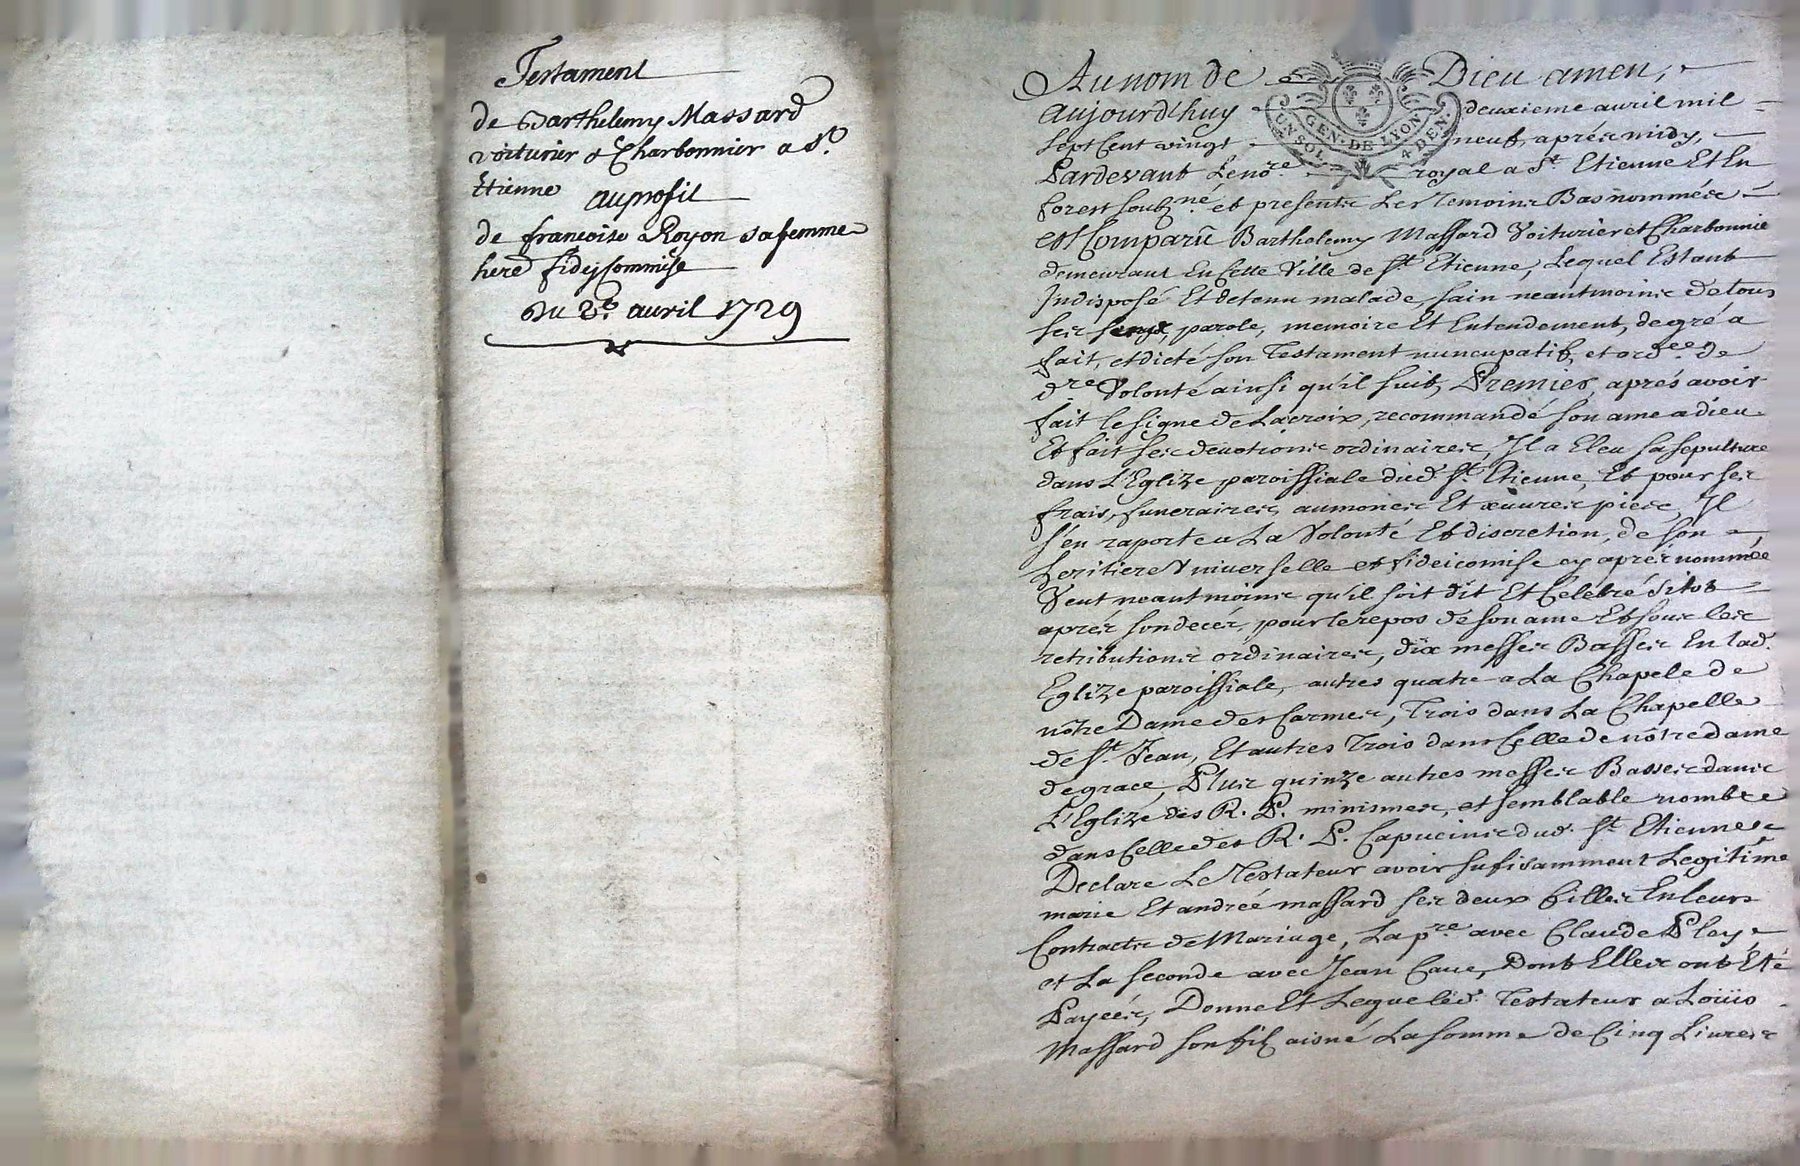 Testament
de Barthelemy Massard
voiturier & Charbonnier a St.
Etienne au profit
de francoise Royon sa femme
here fideycommise
Du 2e. avril 1729
Au nom de Dieu amen,
aujourd'huy deuxieme avril mil
sept Cent vingt neuf, aprés midy,
Pardevant Le nore. royal a St. Etienne Et En
forest soubzné. et presents Les Temoins Bas nommés
est Comparü Barthelemy Massard Voiturier et Charbonnie
demeurant En Cette Ville de St. Etienne, Lequel Estant
Indisposé Et detenu malade, sain neantmoins de tous
ses sens, parole, memoire Et Entendement, de gré a
fait, et dicté son Testament nuncupatif, et ordee. de
dre. Volonté ainsi qu'il suit, Premier, aprés avoir
fait le signe de La croix, recommandé son ame a dieu
Et fait ses devotions ordinaires, Il a Eleu sa sepulture
dans L'Eglize paroissiale dud. St. Etienne, Et pour ses
frais, funeraires, aumones Et œuvres pies, Il
s'en raporte a La Volonté Et discretion, de son
heritiere Vniverselle et fideicomise cy aprés nommée
Veut neantmoins qu'il soit dit Et Celebré sitot
aprés son decés, pour le repos de son ame Et sous les
retributions ordinaires, dix messes Basses En lad.
Eglize paroissiale, autres quatre a La Chapele de
nôtre Dame des Carmes, Trois dans La Chapelle
de St. Jean, Et autres Trois dans Celle de nôtre dame
de grace, Plus quinze autres messes Basses dans
L'Eglize des R. P. minismes, et semblable nombre
dans Celle des R. P. Capucins dud. St. Etienne
Declare Le Testateur avoir sufisamment Legitimé
marie Et andrée massard ses deux filles En leurs
Contracts de Mariage, La pre. avec Claude Play
et La seconde avec Jean Cave, Dont Elles ont Eté
Payées, Donne Et Legue led. Testateur a Loüis
Massard son fil aisné La somme de Cinq Livres
GEN. DE LYON
UN SOL 4 DEN.